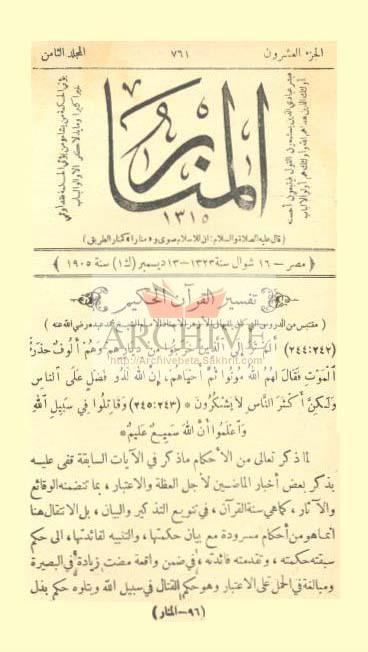 الجزء العشرون ٧٦١ المجلد الثامن
المنار
١٣١٥
(قال عليه الصلاة والسلام: ان للاسلام صوى و«منارا» كمنار الطريق)
﴿ مصر – ١٦ شوال سنة ١٣٢٣ – ١٣ ديسمبر (ك١) سنة ١٩٠٥ ﴾
تفسير القرآن الحكيم
ARCHIVE
http://Archivebeta.Sakhrit.com
(٢٤٢:٢٤٤) أَلَمْ تَرَ إِلَى الَّذِينَ خَرَجُوا مِنْ دِيَارِهِمْ وَهُمْ أُلُوفٌ حَذَرَ
الْمَوْتِ فَقَالَ لَهُمُ اللهُ مُوتُوا ثُمَّ أَحْيَاهُمْ، إِنَّ اللهَ لَذُو فَضْلٍ عَلَى النَّاسِ
وَلَكِنَّ أَكْثَرَ النَّاسِ لَا يَشْكُرُونَ * (٢٤٣:٢٤٥) وَقَاتِلُوا فِي سَبِيلِ اللهِ
وَاعْلَمُوا أَنَّ اللهَ سَمِيعٌ عَلِيمٌ *
لما ذكر تعالى من الأحكام ما ذكر في الآيات السابقة قفى عليه
بذكر بعض أخبار الماضين لأجل العظة والاعتبار، بما تتضمنه الوقائع
والآثار، كما هي سنة القرآن، في تنويع التذكير والبيان، بل الانتقال هنا
انما هو من أحكام مسرودة مع بيان حكمتها، والتنبيه لفائدتها، الى حكم
سبقته حكمته، وتقدمته فائدته، في ضمن واقعة مضت زيادة في البصيرة
ومبالغة في الحمل على الاعتبار وهو حكم القتال في سبيل الله ويتلوه حكم بذل
(٩٦–المنار)